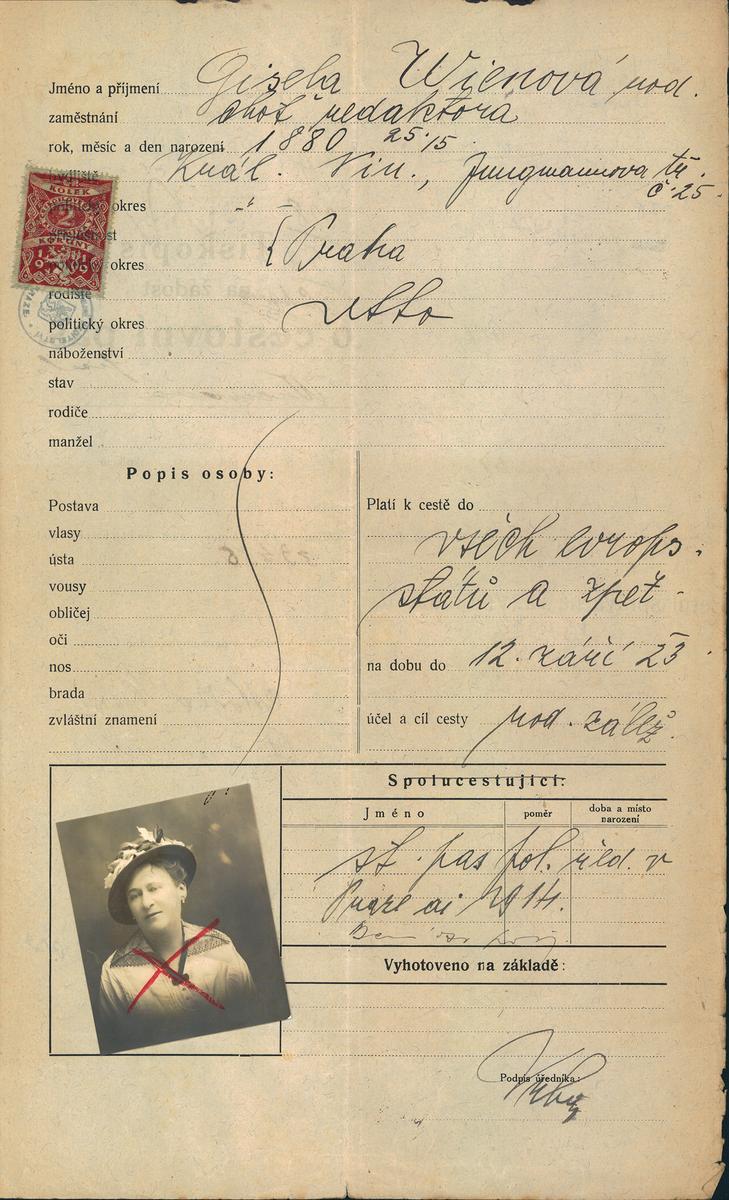 Jméno a příjmení Gisela Wienová rod.
zaměstnání choť redaktora
rok, měsíc a den narození 1880 25./5
Král. Vin., Jungmannova tř.
č. 25
okres -"-
Praha
okres
rodiště
politický okres
náboženství
stav
rodiče
manžel
KOLEK
2
KORUNY
1919
Popis osoby:
Postava
vlasy
ústa
vousy
obličej
oči
nos
brada
zvláštní znamení
Platí k cestě do
všech evrops.
států a zpět
na dobu do 12. září 23
účel a cíl cesty rod. zálež.
Spolucestující:
Jméno poměr doba a místo
narození
st. pas pol. řed. v
Praze 1914.
Vyhotoveno na základě:
Podpis úředníka: